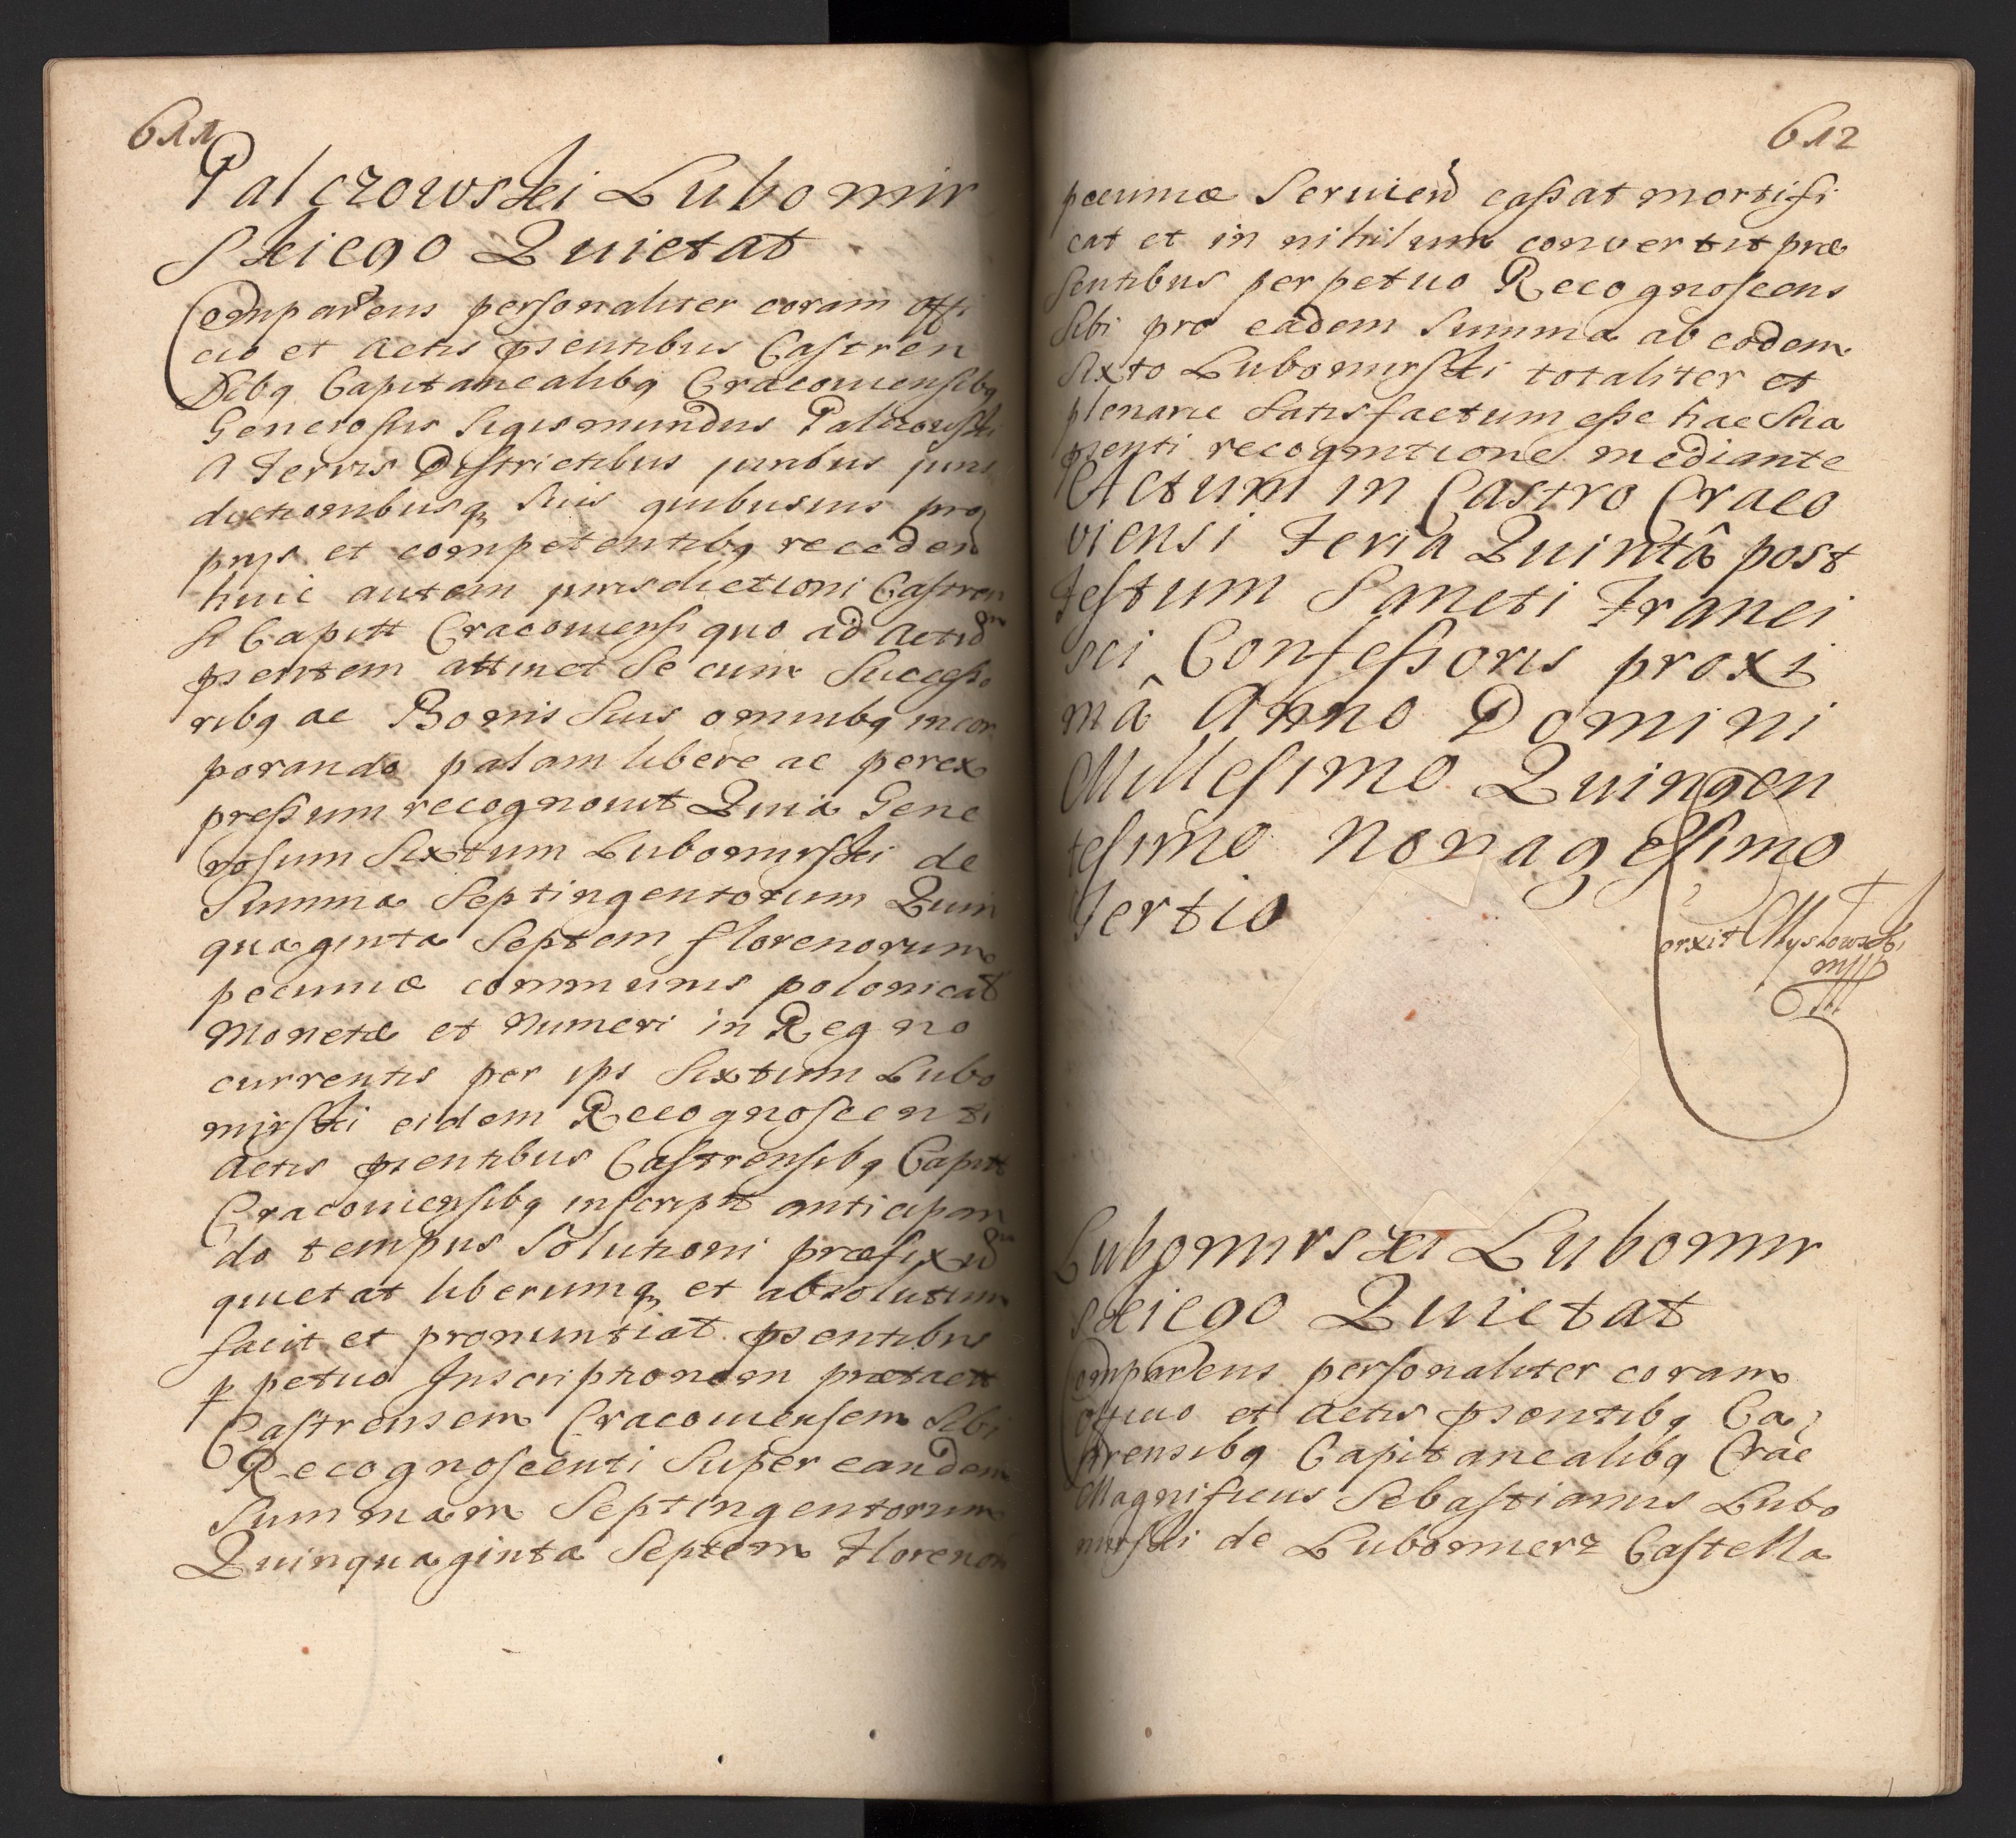 611
Palczowski Lubomir
skiego Quietat
Comparens personaliter coram offi
cio et Actis psentibus Castren
sibq Capitanealibq Cracouiensibq
Generosus Sigismundus Palczowski
A Terris Districtibus juribus juris
dictionibusq suis quibusuis pro
prijs et competentibq recedend
huic autem jurisdictioni Castren
si Capitt Cracouiensi quo ad Actum
psentem attinet se cum Successo
ribq ac Bonis suis omnibq incor
porando palam libere ac perex
pressum recognouit Quia Gene
rosum Sixtum Lubomirski de
Summa Septingentorum Quin
quaginta Septem florenorum
pecuniæ communis polonicat
Monetæ et Numeri in Regno
currentis per ips Sixtum Lubo
mirski eidem Recognoscenti
Actis psentibus Castrensibq Capitt
Cracouiensibq inscript anticipan
do tempus Solutioni præfixum
quietat liberumq et absolutum
facit et pronuntiat psentibus
ppetuo Inscriptionem prætactt
Castrensem Cracouiensem Sibi
Recognoscenti Super eandem
Summam Septingentorum
Quinquaginta Septem Florenor
612
pecuniæ Seruiend cassat mortifi
cat et in nihilum convertit præ
sentibus perpetuo Recognoscens
Sibi pro eadem Summa ab eodem
Sixto Lubomirski totaliter et
plenarie Satisfactum esse hac Sua
psenti recognitione mediante
Actum in Castro Craco
viensi Feria Quintâ post
Festum Sancti Franci
sci Confessoris proxi
mâ Anno Domini
Millesimo Quingen
tesimo Nonagesimo
Tertio
Myslowski
mpp
Lubomirski Lubomir
skiego Quietat
Comparens personaliter coram
officio et Actis psentibq Ca
strensibq Capitanealibq Crac
Magnificus Sebastianus Lubo
mirski de Lubomierz Castella